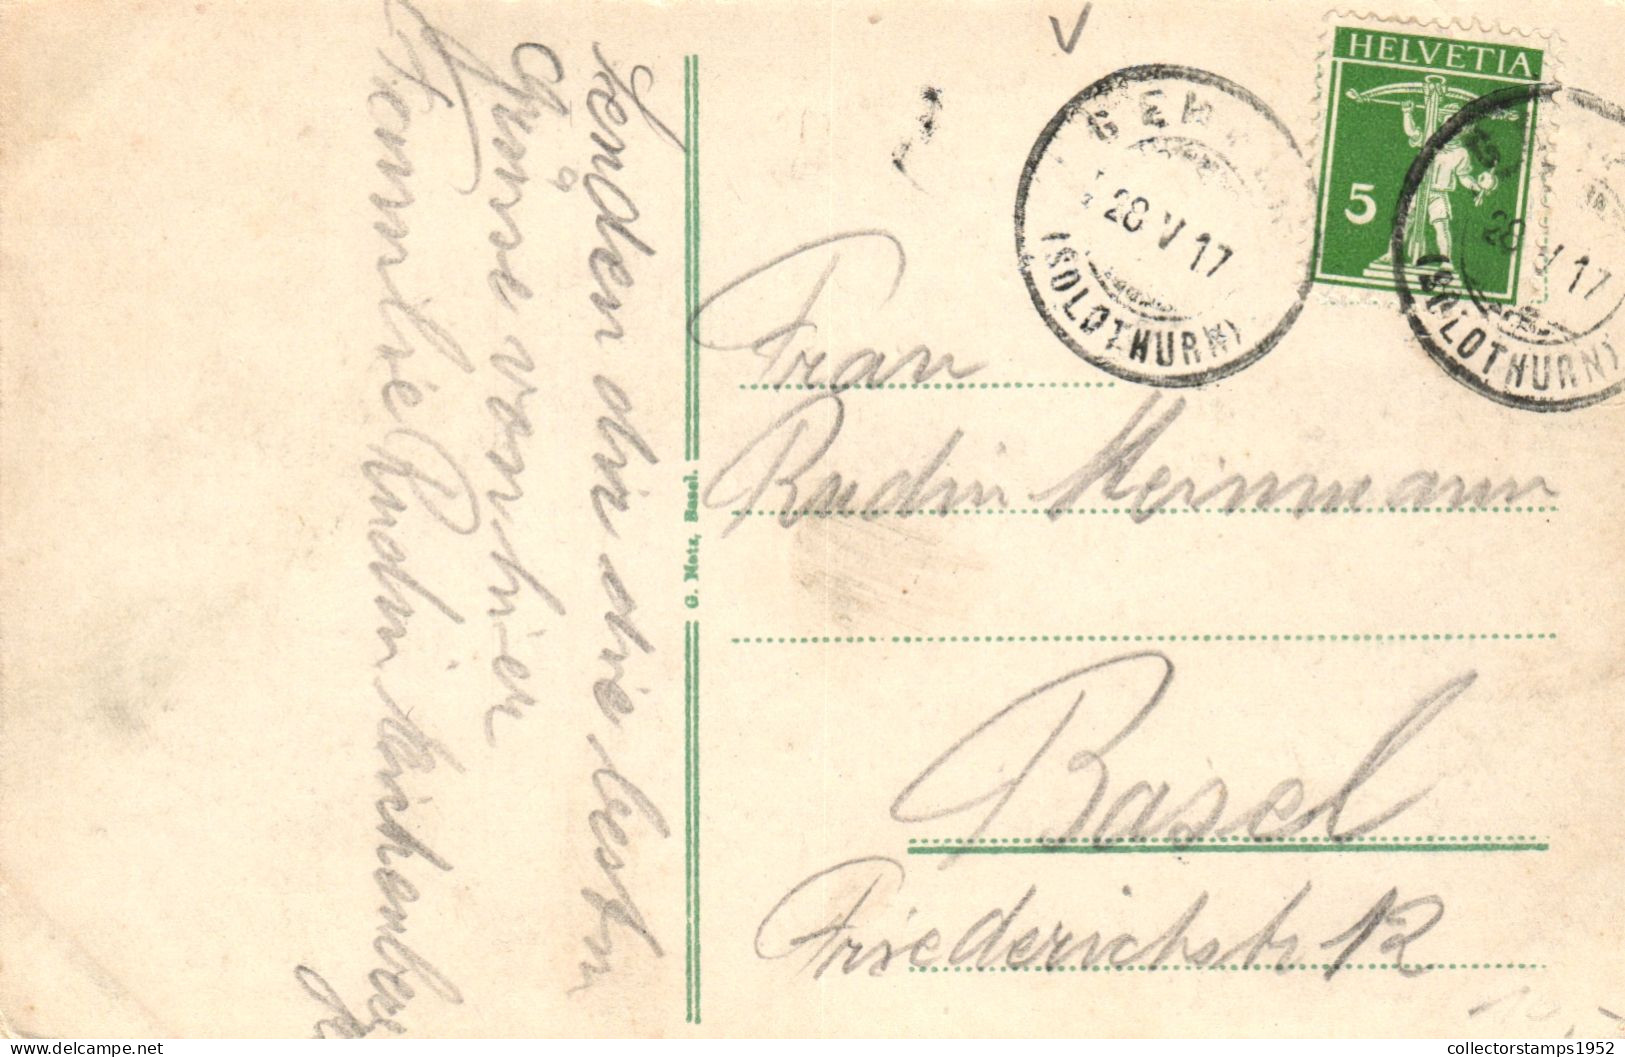 Senden dir die besten
Grüsse von hier
Familie Rudin
HELVETIA
5
28 V 17
(SOLOTHURN)
28 V 17
(SOLOTHURN)
G. Metz, Basel.
Frau
Rudin Meinmann
Basel
Friederichstr 12
collectorstamps1952